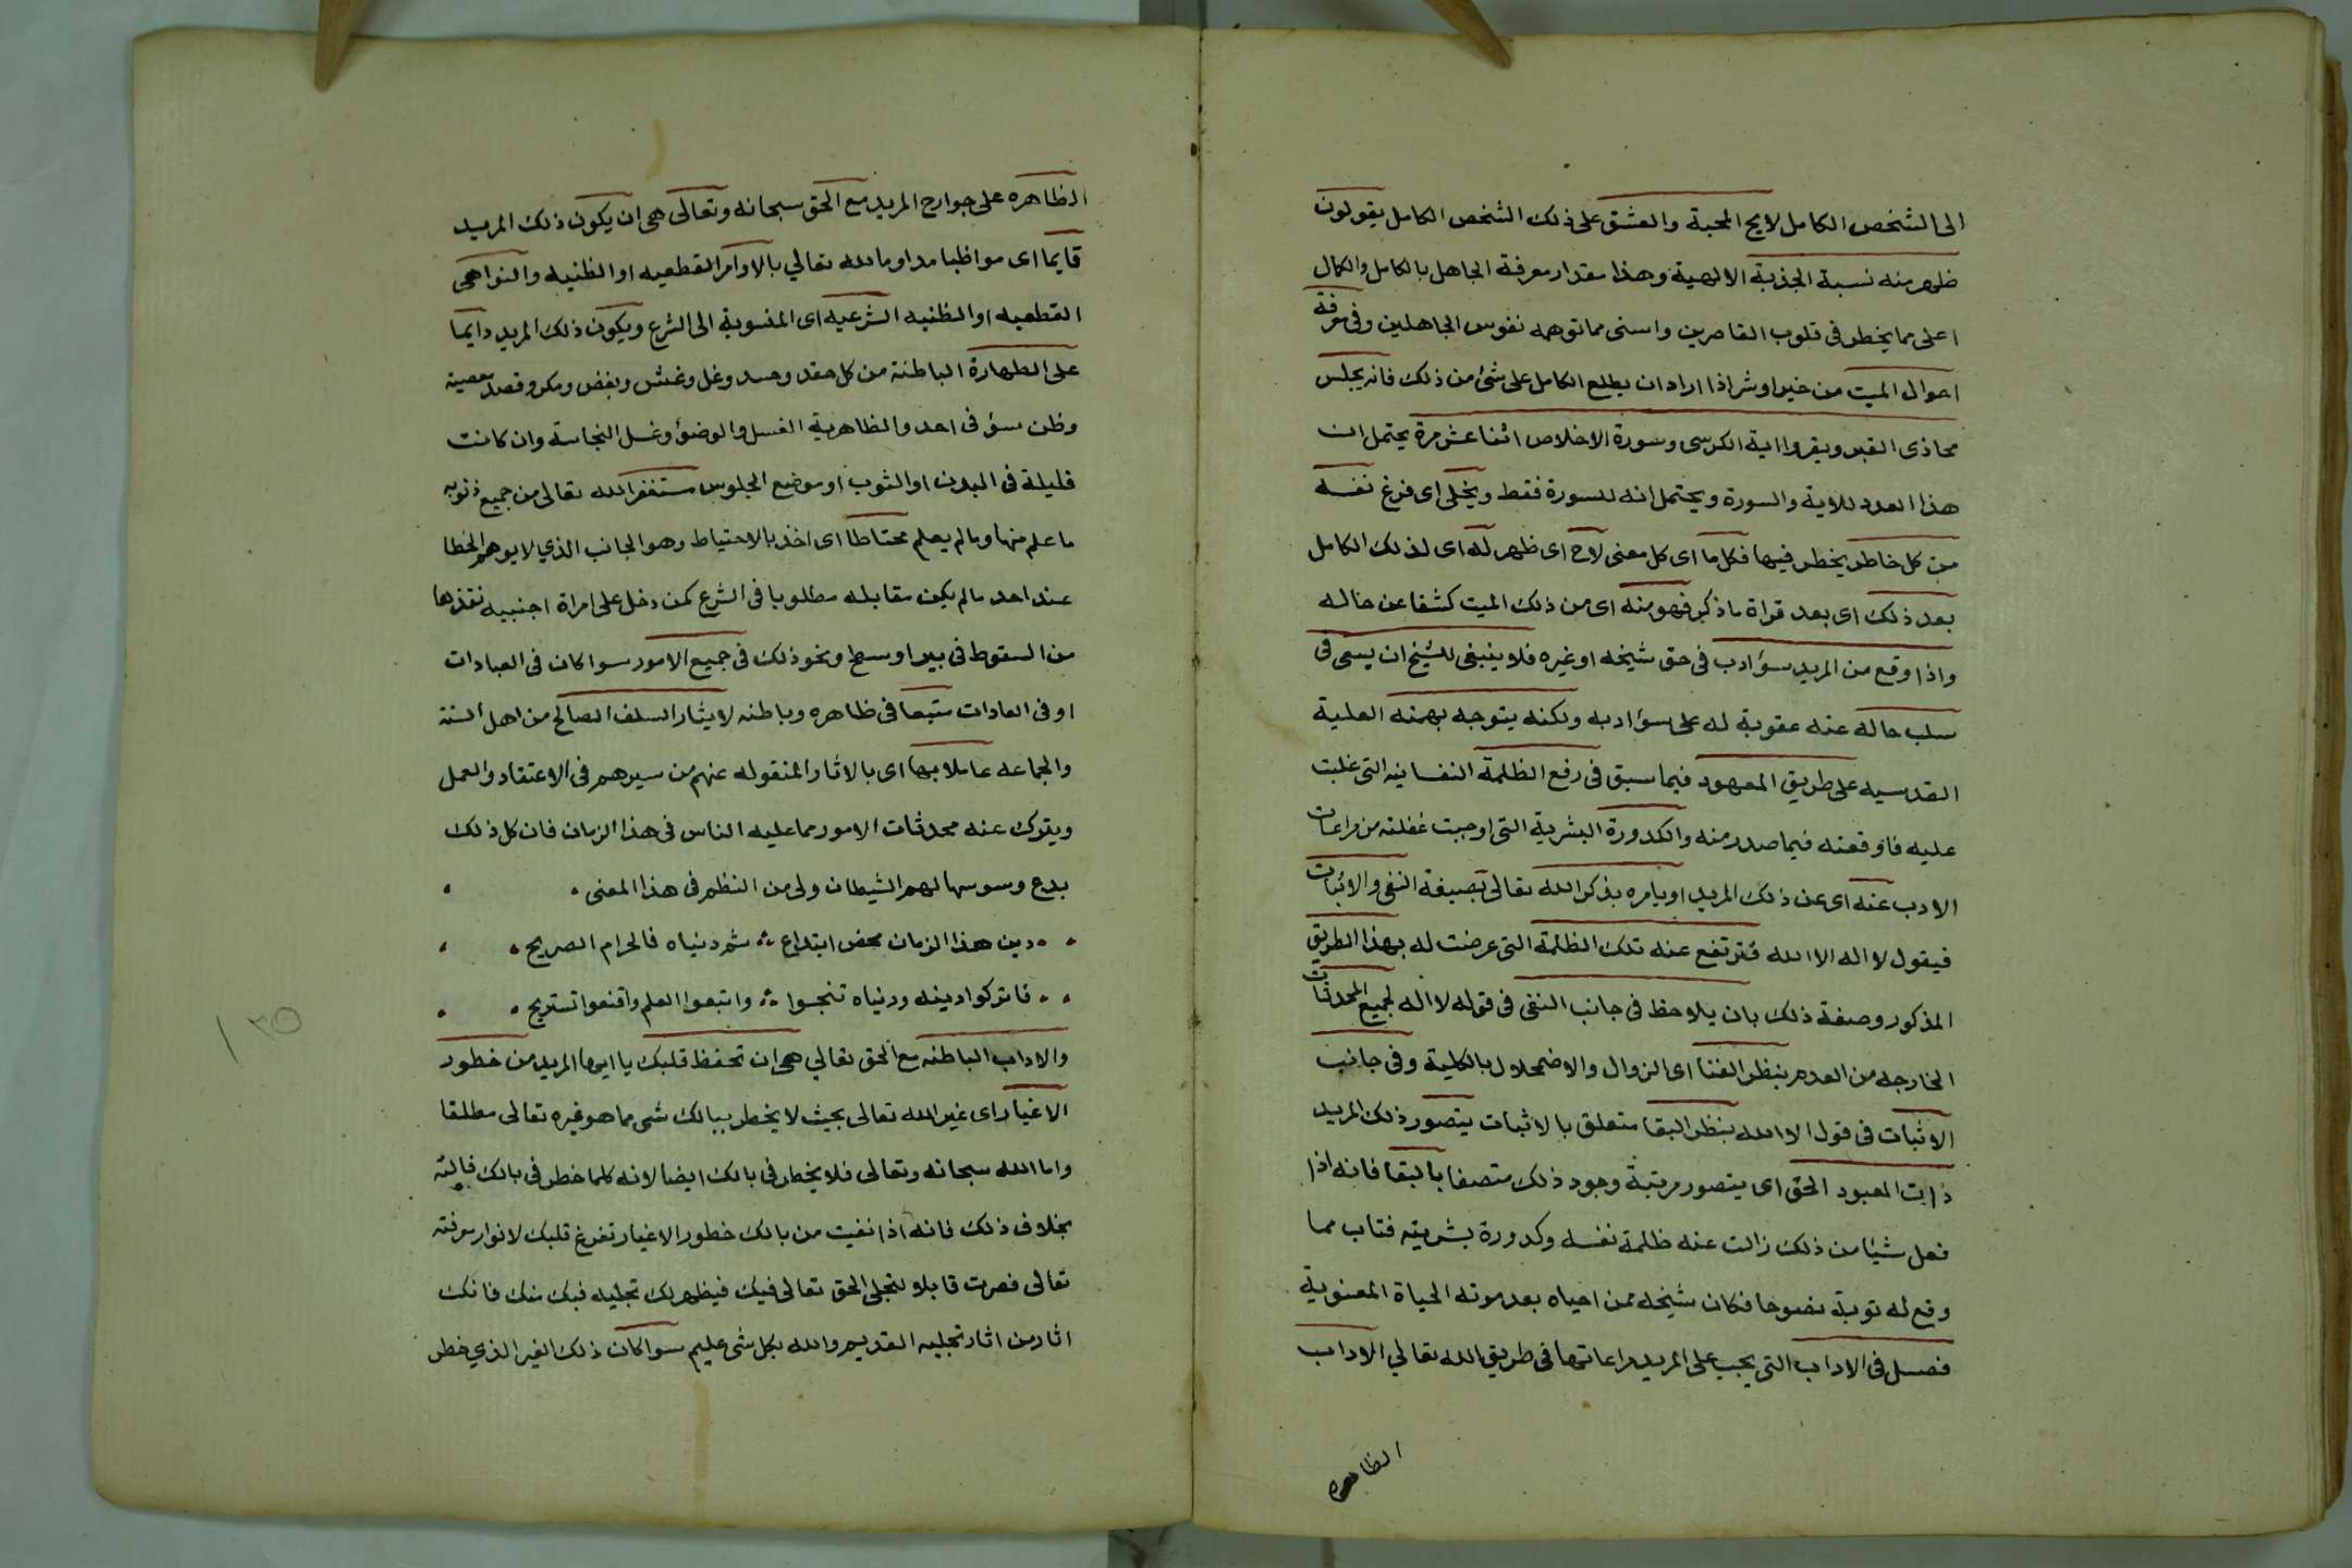 الى الشخص الكامل لايح المحبة والعشق على ذلك الشخص الكامل يقولون
ظهر منه نسبة الجذبة الالهية وهذا مقدار معرفة الجاهل بالكامل والكمال
اعلى مما يخطر فى قلوب القاصرين واسنى مما توهمه نفوس الجاهلين وفى معرفة
احوال الميت من خير او شر اذا اراد ان يطلع الكامل على شئ من ذلك فانه يجلس
محاذى القبر ويقروا اية الكرسى وسورة الاخلاص اثنا عشر مرة يحتمل ان
هذا العدد للاية والسورة ويحتمل انه للسورة فقط ويخلى اى فرغ نفسه
من كل خاطر يخطر فيها فكل ما اى كل معنى لاح اى ظهر له اى لذلك الكامل
بعد ذلك اى بعد قراة ما ذكر فهو منه اى من ذلك الميت كشفا عن حاله
واذا وقع من المريد سؤ ادب فى حق شيخه او غيره فلا ينبغى للشيخ ان يسعى فى
سلب حاله عنه عقوبة له على سؤ ادبه ولكنه يتوجه بهمته العلية
القدسيه على طريق المعهود فيما سبق فى رفع الظلمة النفسانيه التى غلبت
عليه فاوقعته فيما صدر منه والكدورة البشرية التى اوجبت غفلته من مراعات
الادب عنه اى عن ذلك المريد او يامره بذكر الله تعالى بصيغة النفى والاثبات
فيقول لا اله الا الله فترتفع عنه تلك الظلمة التى عرضت له بهذا الطريق
المذكور وصفة ذلك بان يلاحظ فى جانب النفى فى قوله لا اله لجميع المحدثات
الخارجه من العدم بنظر الفنا اى الزوال والاضمحلال بالكلية وفى جانب
الاثبات فى قول الا الله بنظر البقا متعلق بالاثبات يتصور ذلك المريد
ذات المعبود الحق اى يتصور مرتبة وجود ذلك متصفا بالبقا فانه اذا
فعل شيئا من ذلك زالت عنه ظلمة نفسه وكدورة بشريته فتاب مما
وقع له توبة نصوحا فكان شيخه ممن احياه بعد موته الحياة المعنوية
فصل فى الاداب التى يجب على المريد مراعاتها فى طريق الله تعالي الاداب
الظاهره
الظاهره على جوارح المريد مع الحق سبحانه وتعالى هى ان يكون ذلك المريد
قايما اى مواظبا مداوما لله تعالي بالاوامر القطعيه او الظنيه والنواهى
القطعيه او الظنيه الشرعيه اى المنسوبة الى الشرع ويكون ذلك المريد دايما
على الطهارة الباطنة من كل حقد وحسد وغل وغش وبغض ومكر وقصد معصية
وظن سؤ فى احد والظاهرية الغسل والوضؤ وغسل النجاسة وان كانت
قليلة فى البدن او الثوب او موضع الجلوس مستغفر الله تعالى من جميع ذنوبه
ما علم منها وما لم يعلم محتاطا اى اخذ بالاحتياط وهو الجانب الذي لا يوهم الخطا
عند احد ما لم يكن مقابله مطلوبا فى الشرع كمن دخل على امراة اجنبيه نقذها
من السقوط فى بير او سطح ونحو ذلك فى جميع الامور سوا كان فى العبادات
او فى العادات متبعا فى ظاهره وباطنه لايثار السلف الصالح من اهل السنة
والجماعه عاملا بها اى بالاثار المنقوله عنهم من سيرهم فى الاعتقاد والعمل
ويترك عنه محدثات الامور مما عليه الناس فى هذا الزمان فان كل ذلك
بدع وسوسها لهم الشيطان ولى من النظم فى هذا المعنى
دين هذا الزمان محض ابتداع ؞ ثم دنياه فالحرام الصريح
فاتركوا دينه ودنياه تنجوا ؞ واتبعوا العلم واقنعوا تستريح
والاداب الباطنه مع الحق تعالي هى ان تحفظ قلبك يا ايها المريد من خطور
الاغيار اى غير الله تعالى بحيث لا يخطر ببالك شى مما هو غيره تعالى مطلقا
واما الله سبحانه وتعالى فلا يخطر فى بالك ايضا لانه كلما خطر فى بالك فالله
بخلاف ذلك فانه اذا نفيت من بالك خطور الاغيار تفرغ قلبك لانوار معرفته
تعالى فصرت قابلا لتجلى الحق تعالى فيك فيظهر لك تجليه فيك منك فانك
اثار من اثار تجليه القديم والله بكل شى عليم سوا كان ذلك الغير الذي خطر
١٣٥